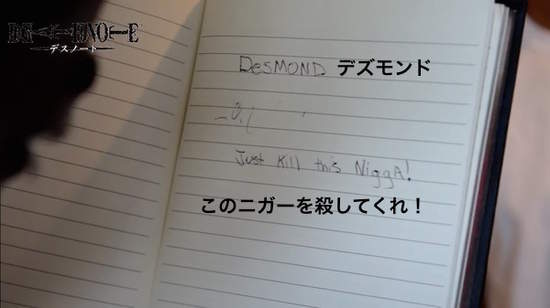 DEATH NOTE
デスノート
DESMOND デズモンド
Just Kill this NiggA!
このニガーを殺してくれ！